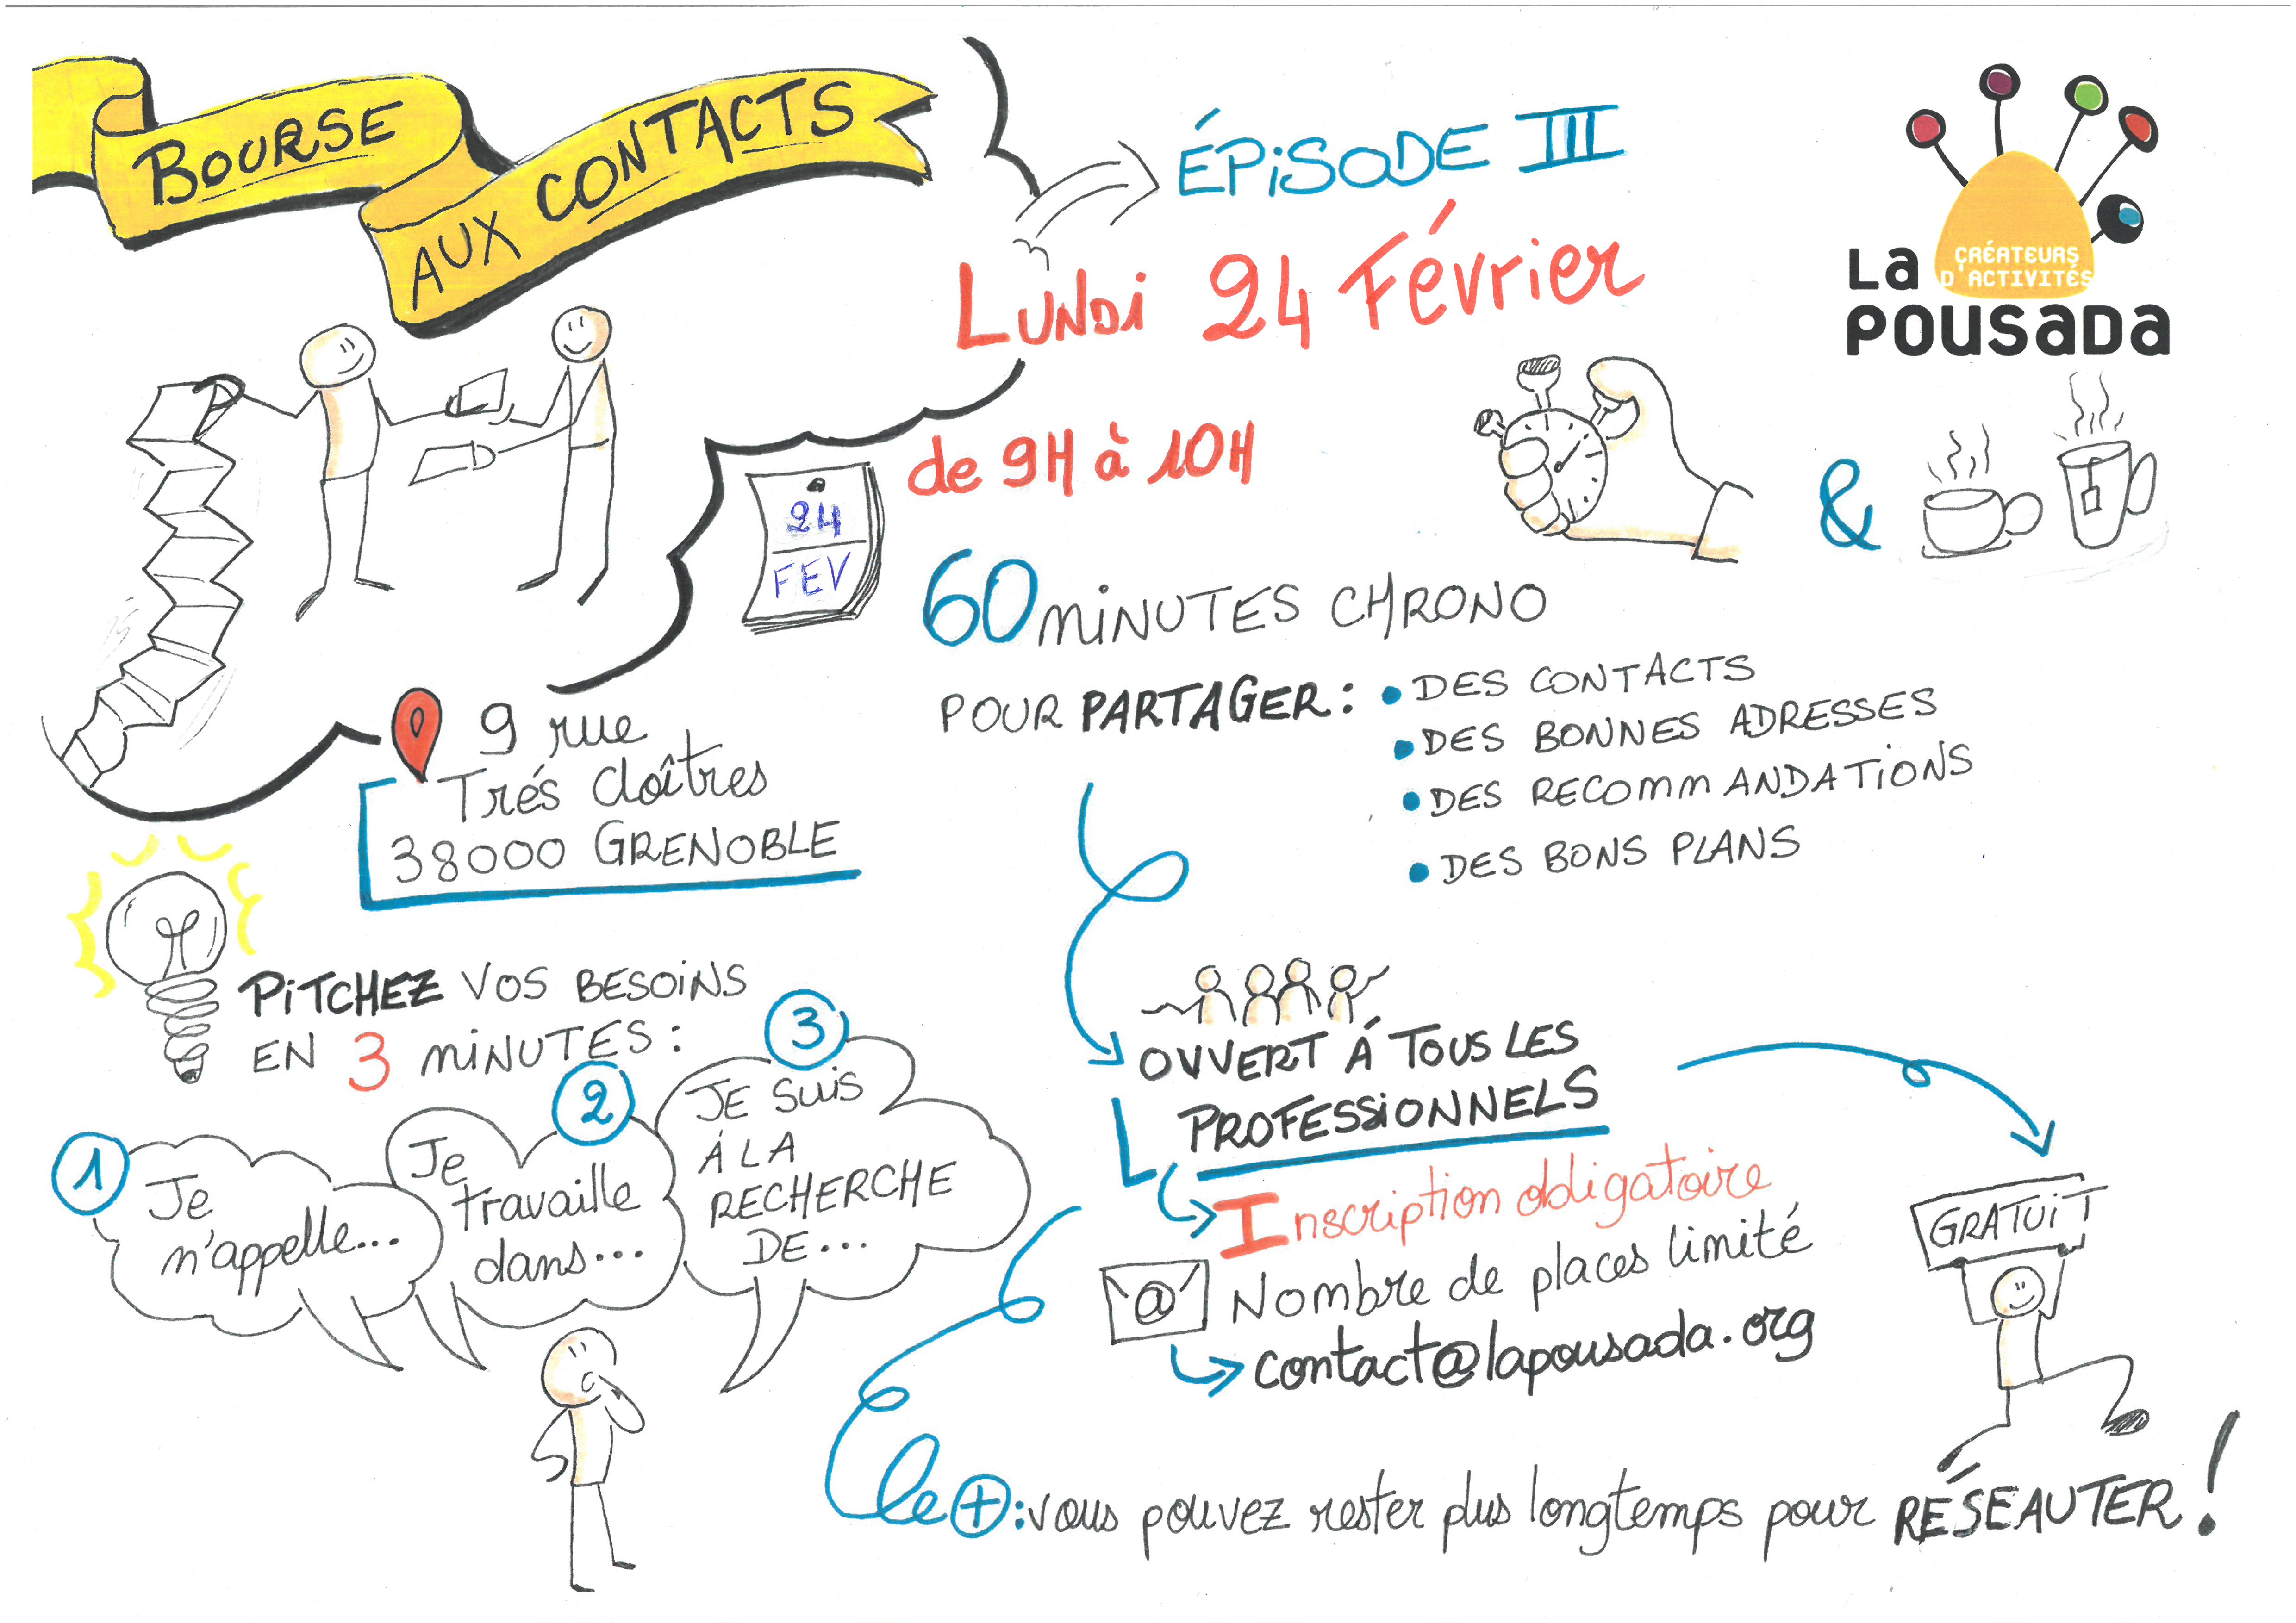 BOURSE
AUX CONTACTS
ÉPISODE III
LUNDI 24 Février
de 9H à 10H
CRÉATEURS
D'ACTIVITÉS
La
POUSADA
24
FEV
&
60 MINUTES CHRONO
POUR PARTAGER :
• DES CONTACTS
• DES BONNES ADRESSES
• DES RECOMMANDATIONS
• DES BONS PLANS
9 rue
Trés Cloîtres
38000 GRENOBLE
PITCHEZ VOS BESOINS
EN 3 MINUTES :
1
Je
m'appelle...
2
Je
travaille
dans...
3
JE SUIS
Á LA
RECHERCHE
DE...
OUVERT Á TOUS LES
PROFESSIONNELS
Inscription obligatoire
Nombre de places limité
@
contact@lapousada.org
GRATUIT
le + : vous pouvez rester plus longtemps pour RÉSEAUTER !